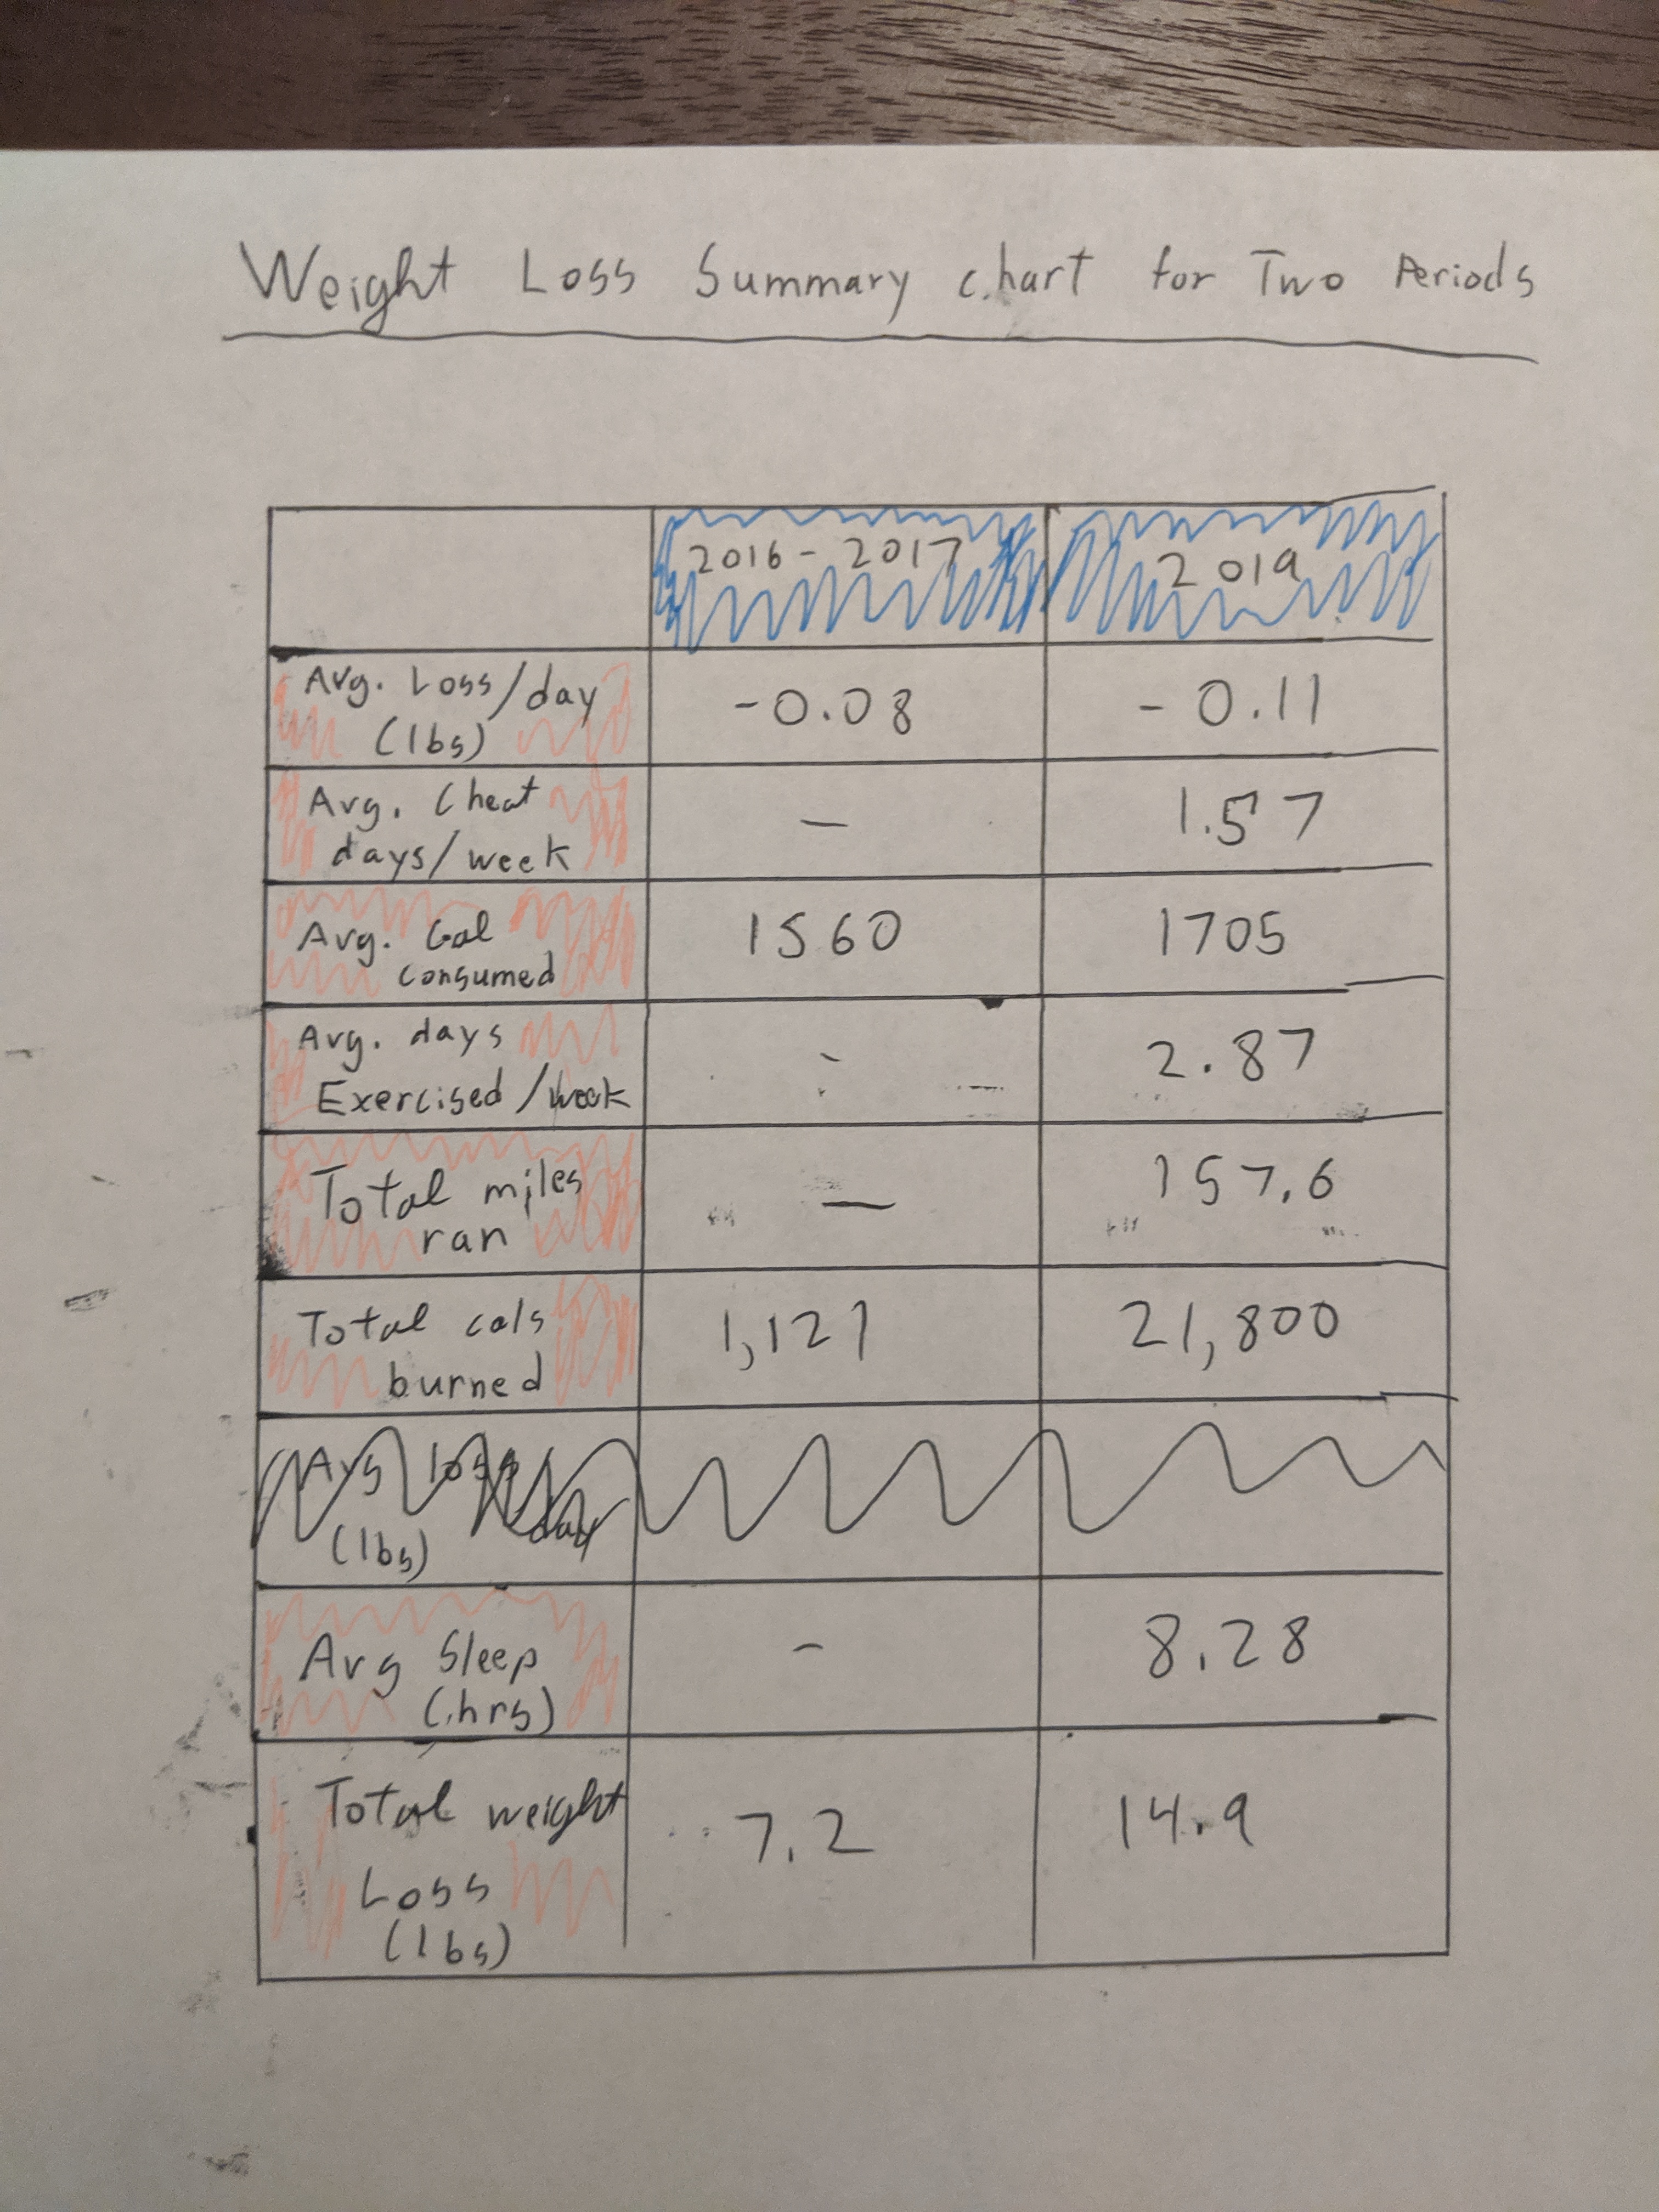 Weight Loss Summary chart for Two Periods
2016 - 2017 2019
Avg. Loss/day
(lbs) -0.08 -0.11
Avg. Cheat
days/week — 1.57
Avg. Cal
consumed 1560 1705
Avg. days
Exercised/week - 2.87
Total miles
ran — 157.6
Total cals
burned 1,121 21,800
Avg loss
day
(lbs)
Avg Sleep
(hrs) - 8.28
Total weight
Loss
(lbs) 7.2 14.9